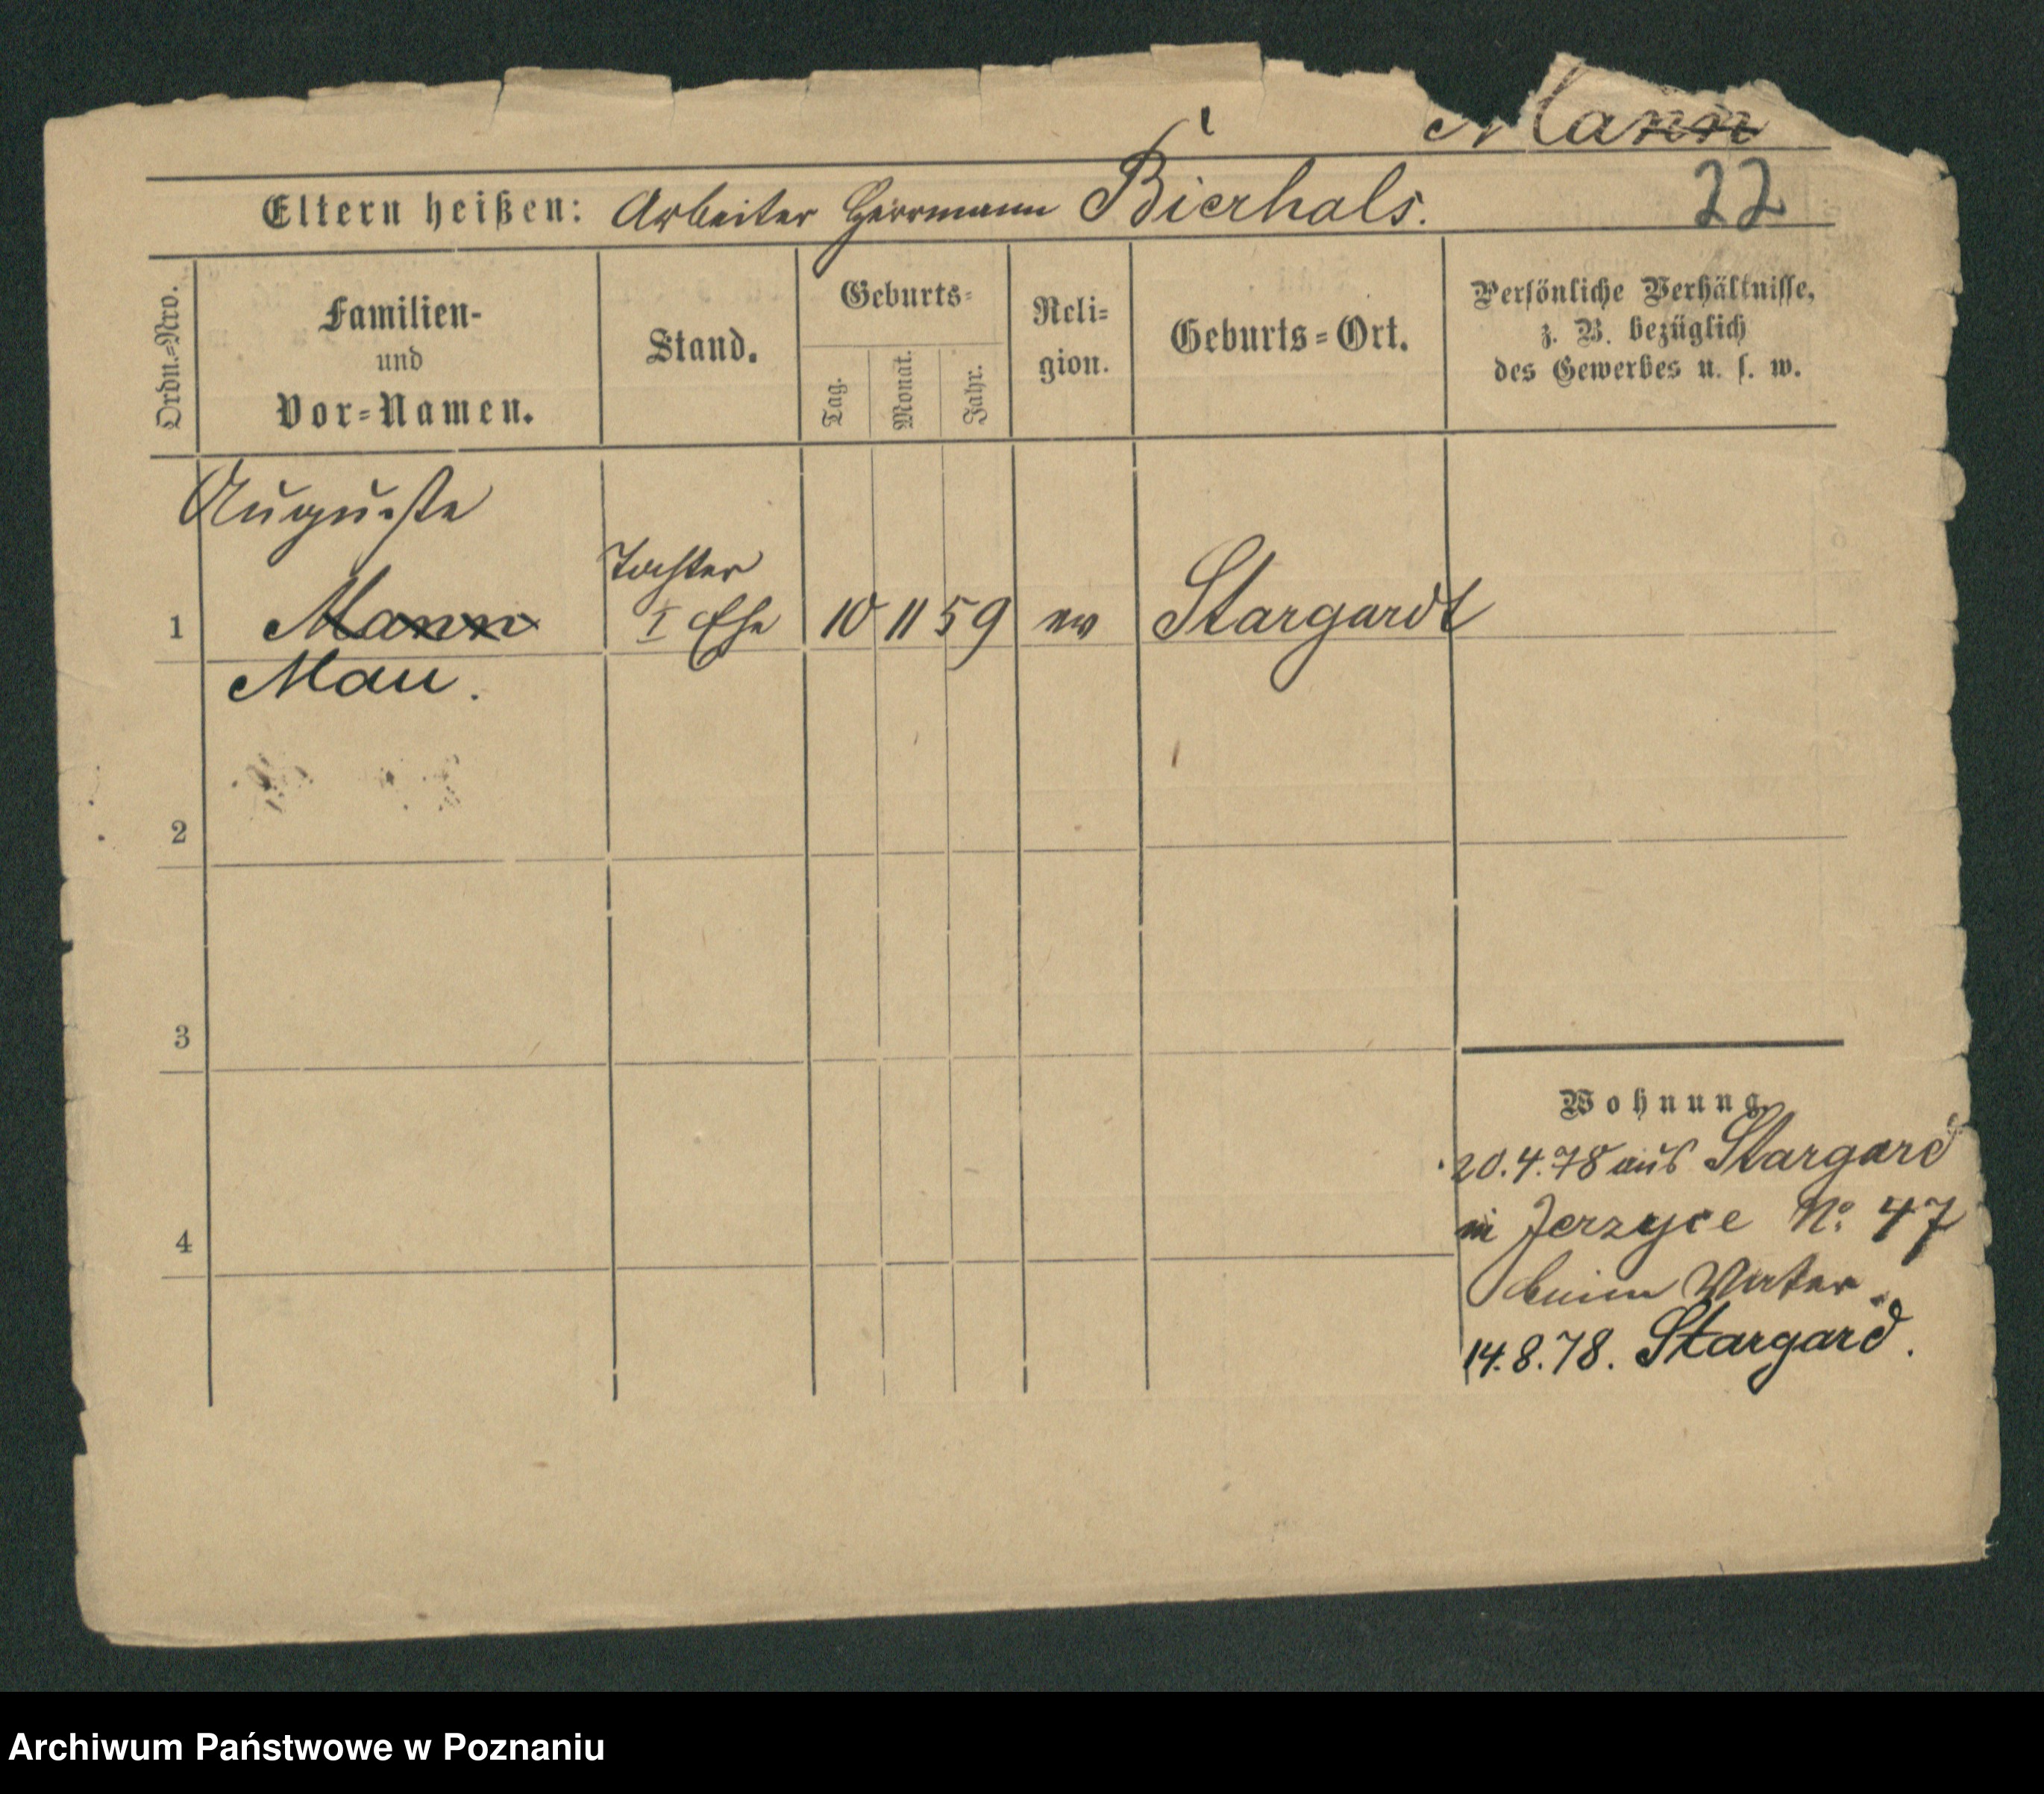 Mann
Eltern heißen: Arbeiter Herrmann Bierhals.
22
Ordn.=Nro.
Familien-
und
Vor=Namen.
Stand.
Geburts=
Tag.
Monat.
Jahr.
Reli=
gion.
Geburts=Ort.
Persönliche Verhältnisse,
z. B. bezüglich
des Gewerbes u. s. w.
Auguste
Tochter
1 Mann I Ehe 10 11 59 ev Stargardt
Mau.
2
3
Wohnung.
20.4.78 aus Stargard
in Jerzyce No. 47
4
beim Vater.
14.8.78. Stargard.
Archiwum Państwowe w Poznaniu